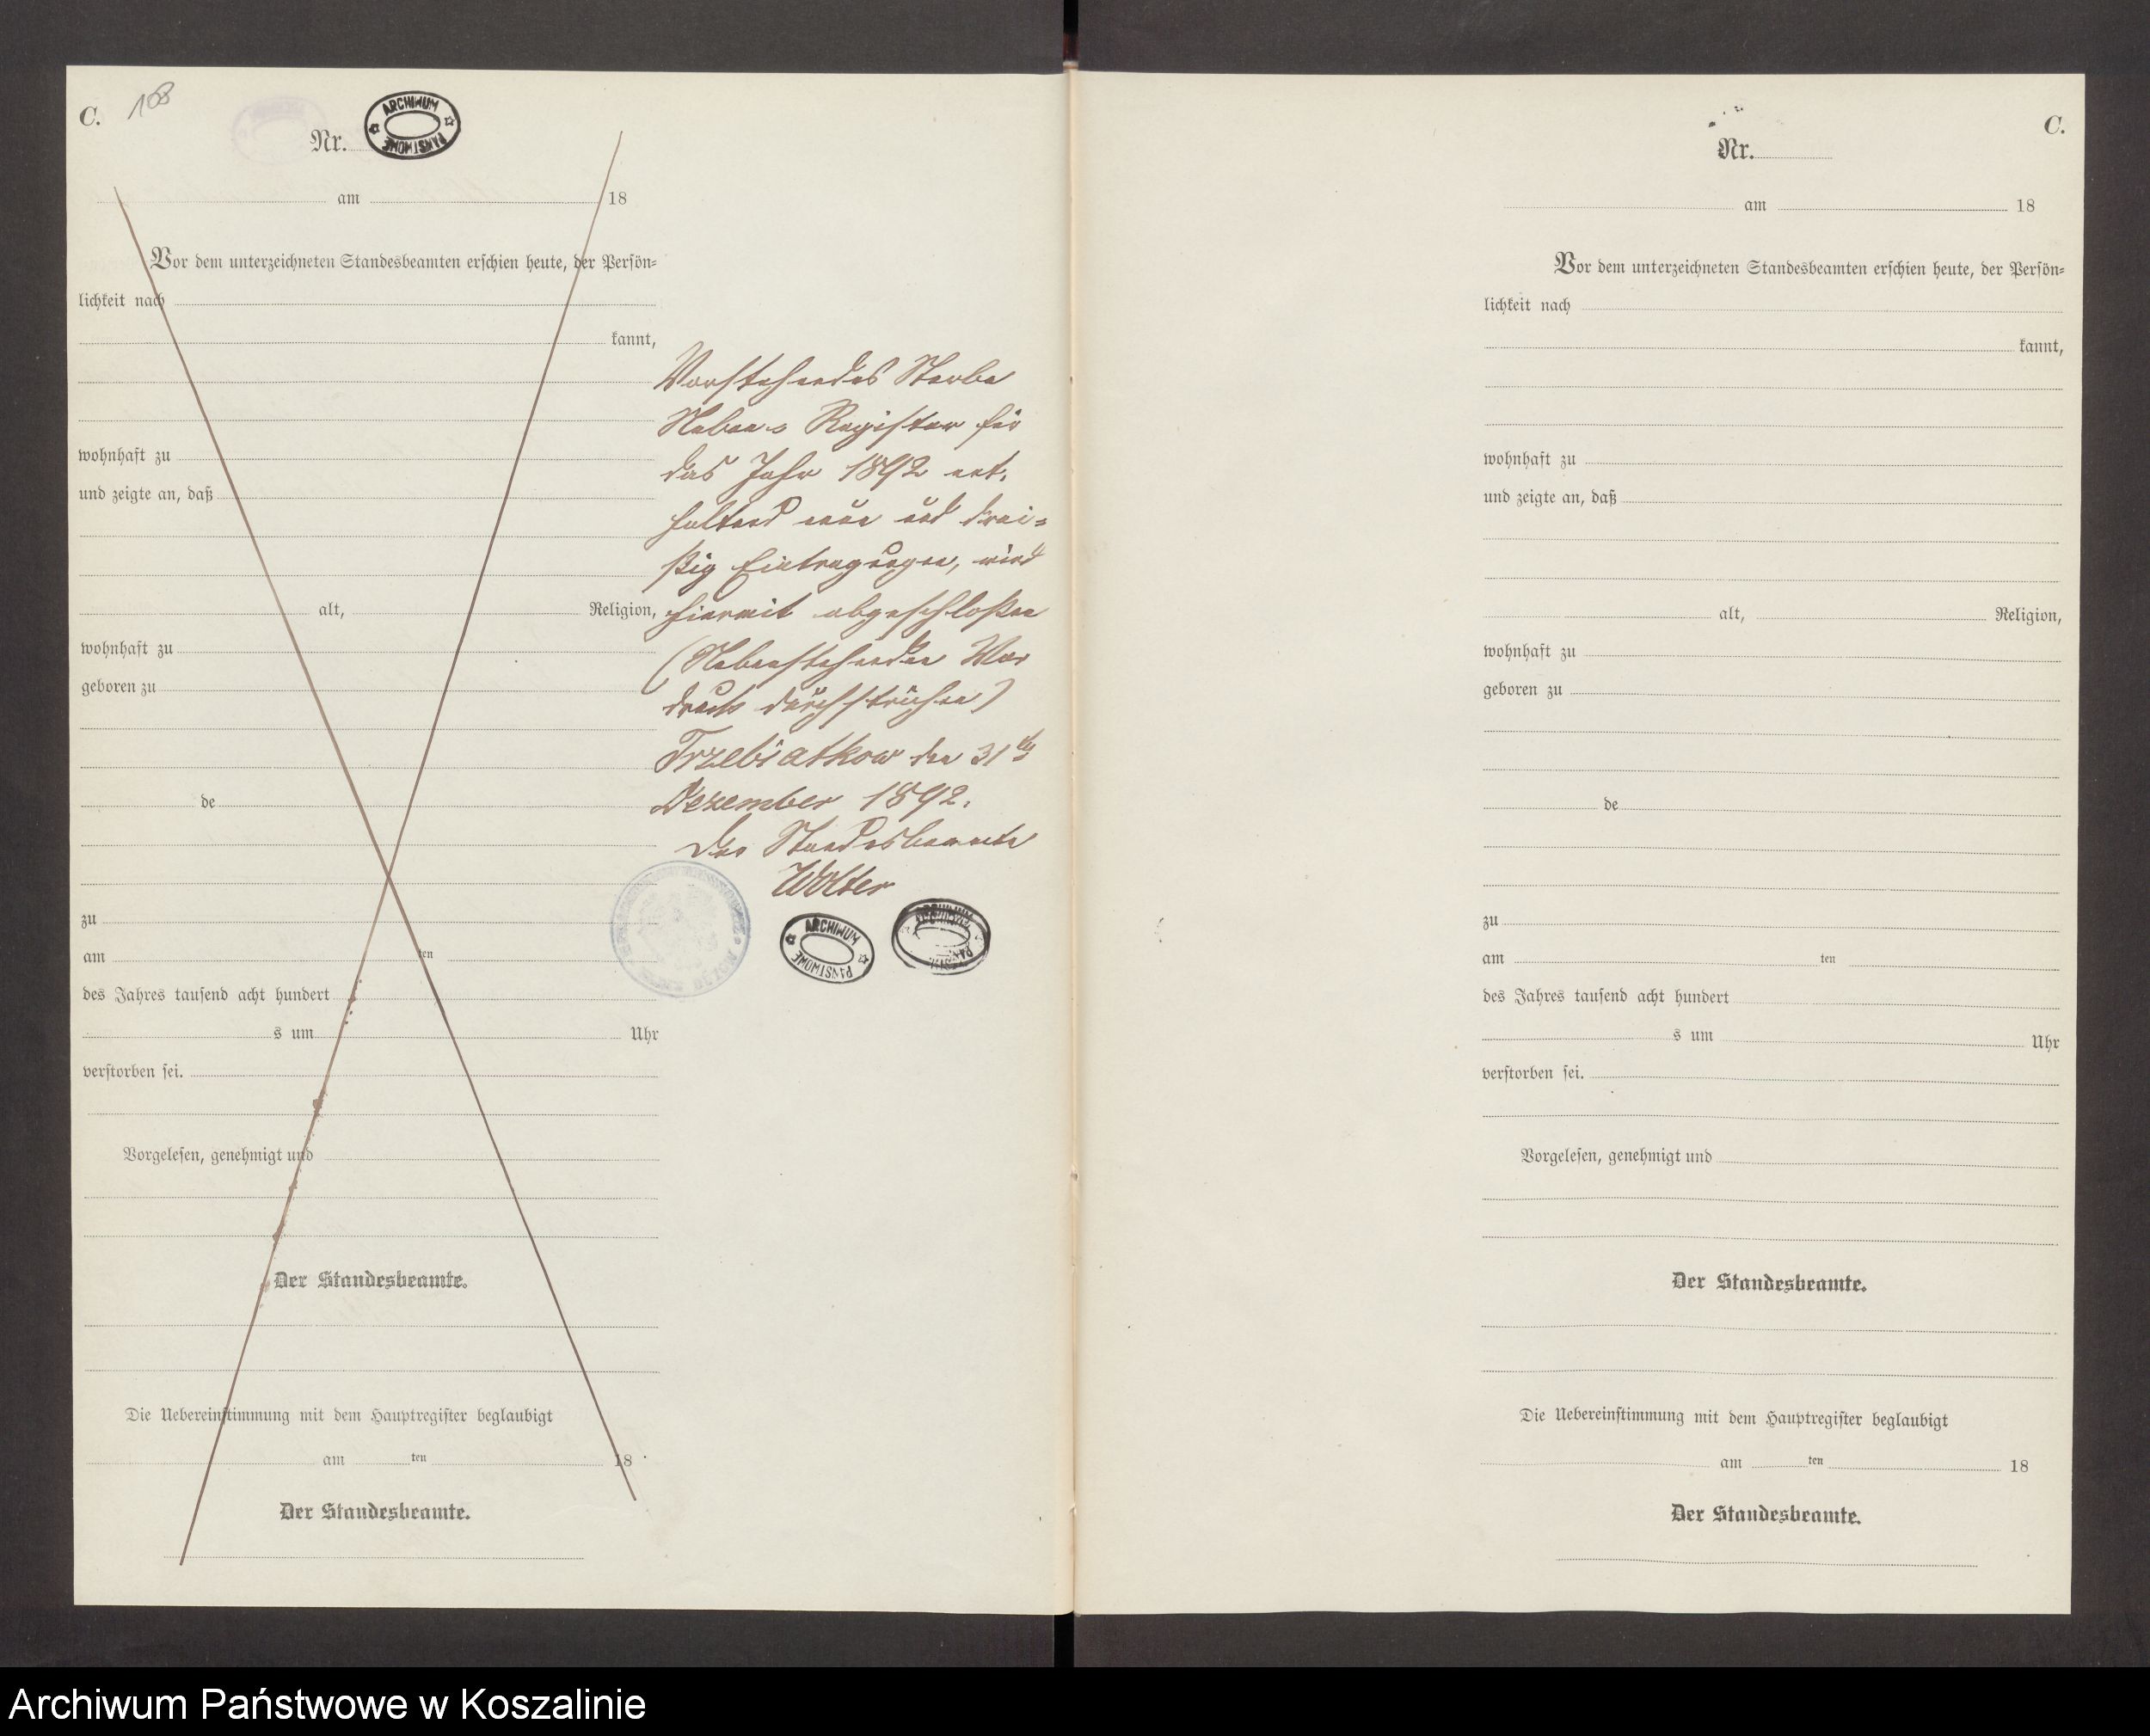 C.
Nr.
ARCHIWUM
PAŃSTWOWE
am 18
Vor dem unterzeichneten Standesbeamten erschien heute, der Persön=
lichkeit nach
kannt,
wohnhaft zu
und zeigte an, daß
alt, Religion,
wohnhaft zu
geboren zu
de
zu
am ten
des Jahres tausend acht hundert
s um Uhr
verstorben sei.
Vorgelesen, genehmigt und
Der Standesbeamte.
Die Uebereinstimmung mit dem Hauptregister beglaubigt
am ten 18
Der Standesbeamte.
Vorstehendes Sterbe
Neben Register für
das Jahr 1892 ent.
haltend neun und drei=
ßig Eintragungen, wird
hiermit abgeschloßen
(Nebenstehenden Vor
druck durchstrichen)
Trzebiatkow den 31ten
Dezember 1892.
Der Standesbeamte
Wolter
ARCHIWUM
PAŃSTWOWE
ARCHIWUM
C.
Nr.
am 18
Vor dem unterzeichneten Standesbeamten erschien heute, der Persön=
lichkeit nach
kannt,
wohnhaft zu
und zeigte an, daß
alt, Religion,
wohnhaft zu
geboren zu
de
zu
am ten
des Jahres tausend acht hundert
s um Uhr
verstorben sei.
Vorgelesen, genehmigt und
Der Standesbeamte.
Die Uebereinstimmung mit dem Hauptregister beglaubigt
am ten 18
Der Standesbeamte.
Archiwum Państwowe w Koszalinie